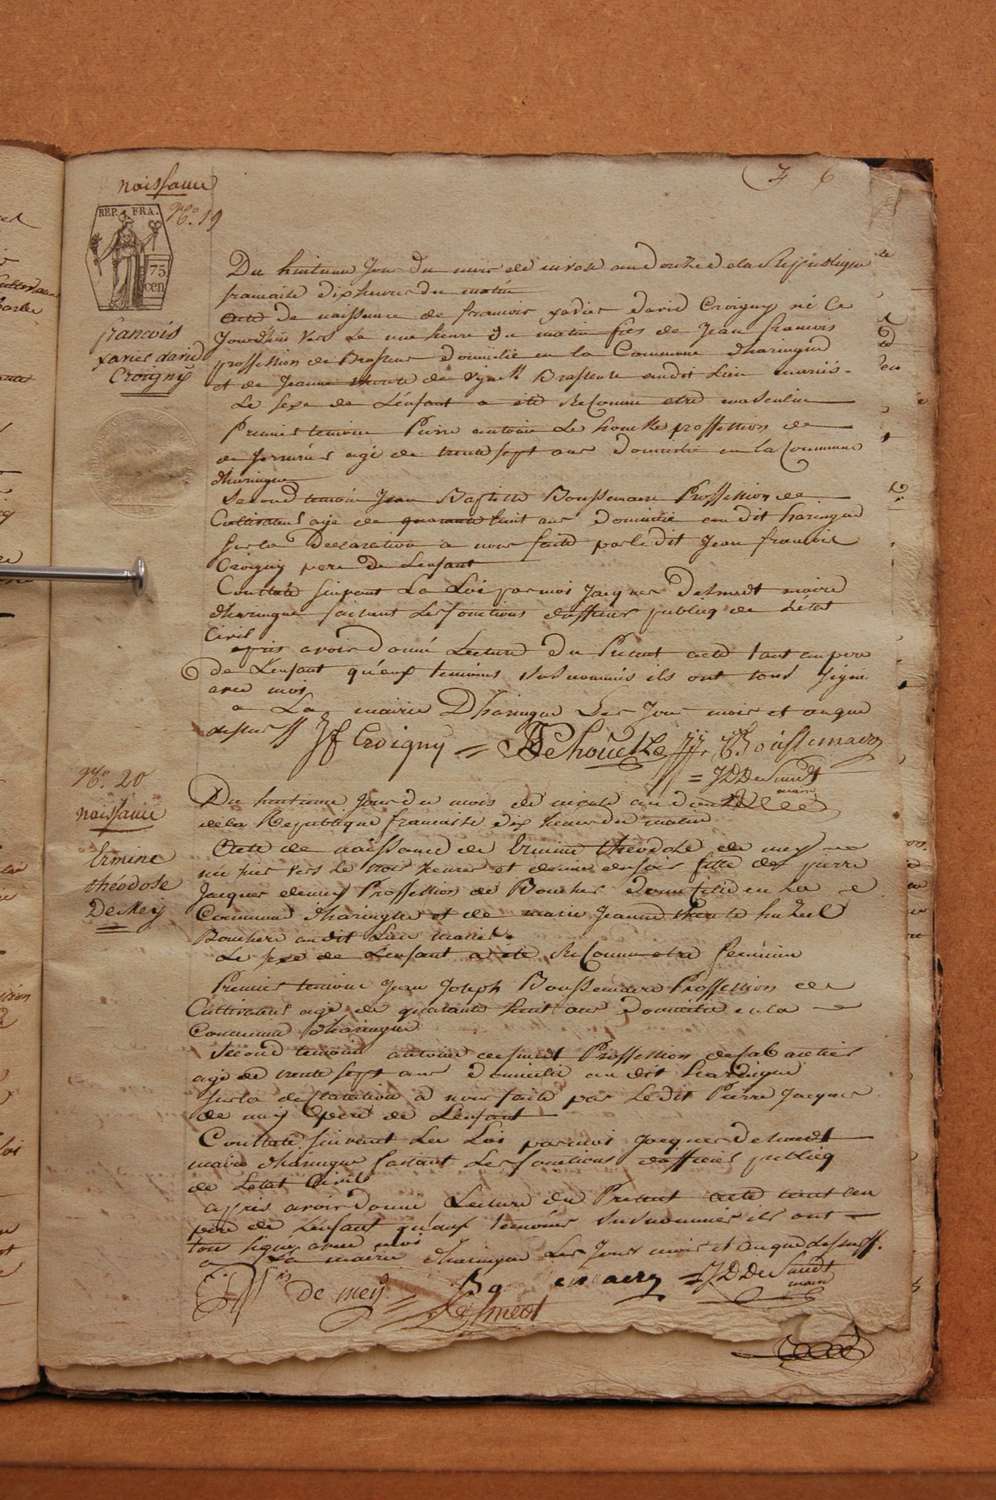 naissance
No. 19
REP. FRA.
75
cen
6
francois
xavier david
Croigny
Du huitieme Jour du mois de nivose an douze de la Republique
francaise dix heures du matin
acte de naissance de francois xavier david Croigny né Ce
Jourdhui vers la une heure du matin fils de Jean francois
proffession de Brasseur domicilié en la Commune dharingue
et de Jeanne de Brasseure audit Lieu mariés
Le sexe de Lenfant a eté reConnu etre masculin
Premier temoin Pierre antoine Le houcke proffession de
de fermier agé de trente sept ans domicilié en la Commune
dharingue
Second temoin Jean Baptiste Boussemaere Proffession de
Cultivateur agé de quarante huit ans domicilié audit haringue
sur la Declaration a nous faite par ledit Jean francois
Croigny pere de Lenfant
Constaté suivant La Loi par moi Jacques Desmedt maire
dharingue faisant Les fonctions dofficier publicq de Létat
Civil
apris avoir donné Lecture du Present acte tant au pere
de Lenfant qu'aux temoins susnommés ils ont tous signé
avec moi
a La mairie Dharingue Les Jour mois et an que
dessus
JF Croigny = Lehoucke JB Boussemaere
= J D DeSmedt
maire
No. 20
naissance
Ermine
théodose
DeMeÿ
Du huitieme Jour du mois de nivose an douze
de la Republique francaise dix heures du matin
Acte de naissance de Ermine théodose de meÿ
né hier vers le trois heures et demie du soir fille de pierre
Jacques demeÿ Proffession de Boucher Domicilié en La
Commune dharingue et de marie Jeanne
Bouchere audit Lieu mariés
Le sexe de Lenfant a eté reConnu etre feminin
Premier temoin Jean Joseph Boussemaere Proffession de
Cultivateur agé de quarante huit ans Domicilié en la
Commune dharingue
Second temoin antoine desmedt Proffession de Cabaretier
agé de trente sept ans domicilié au dit haringue
sur la declaration a nous faite par Ledit Pierre Jacques
de meÿ pere de Lenfant
Constaté suivant La Loi par moi Jacques Desmedt
maire dharingue faisant Les fonctions dofficier publicq
de Létat Civil
apris avoir donné Lecture du Present acte tant au
pere de Lenfant qu'aux temoins susnommés ils ont
tous signé avec moi
a La mairie dharingue Les Jour mois et an que dessus.
de meÿ = J D DeSmedt
maire